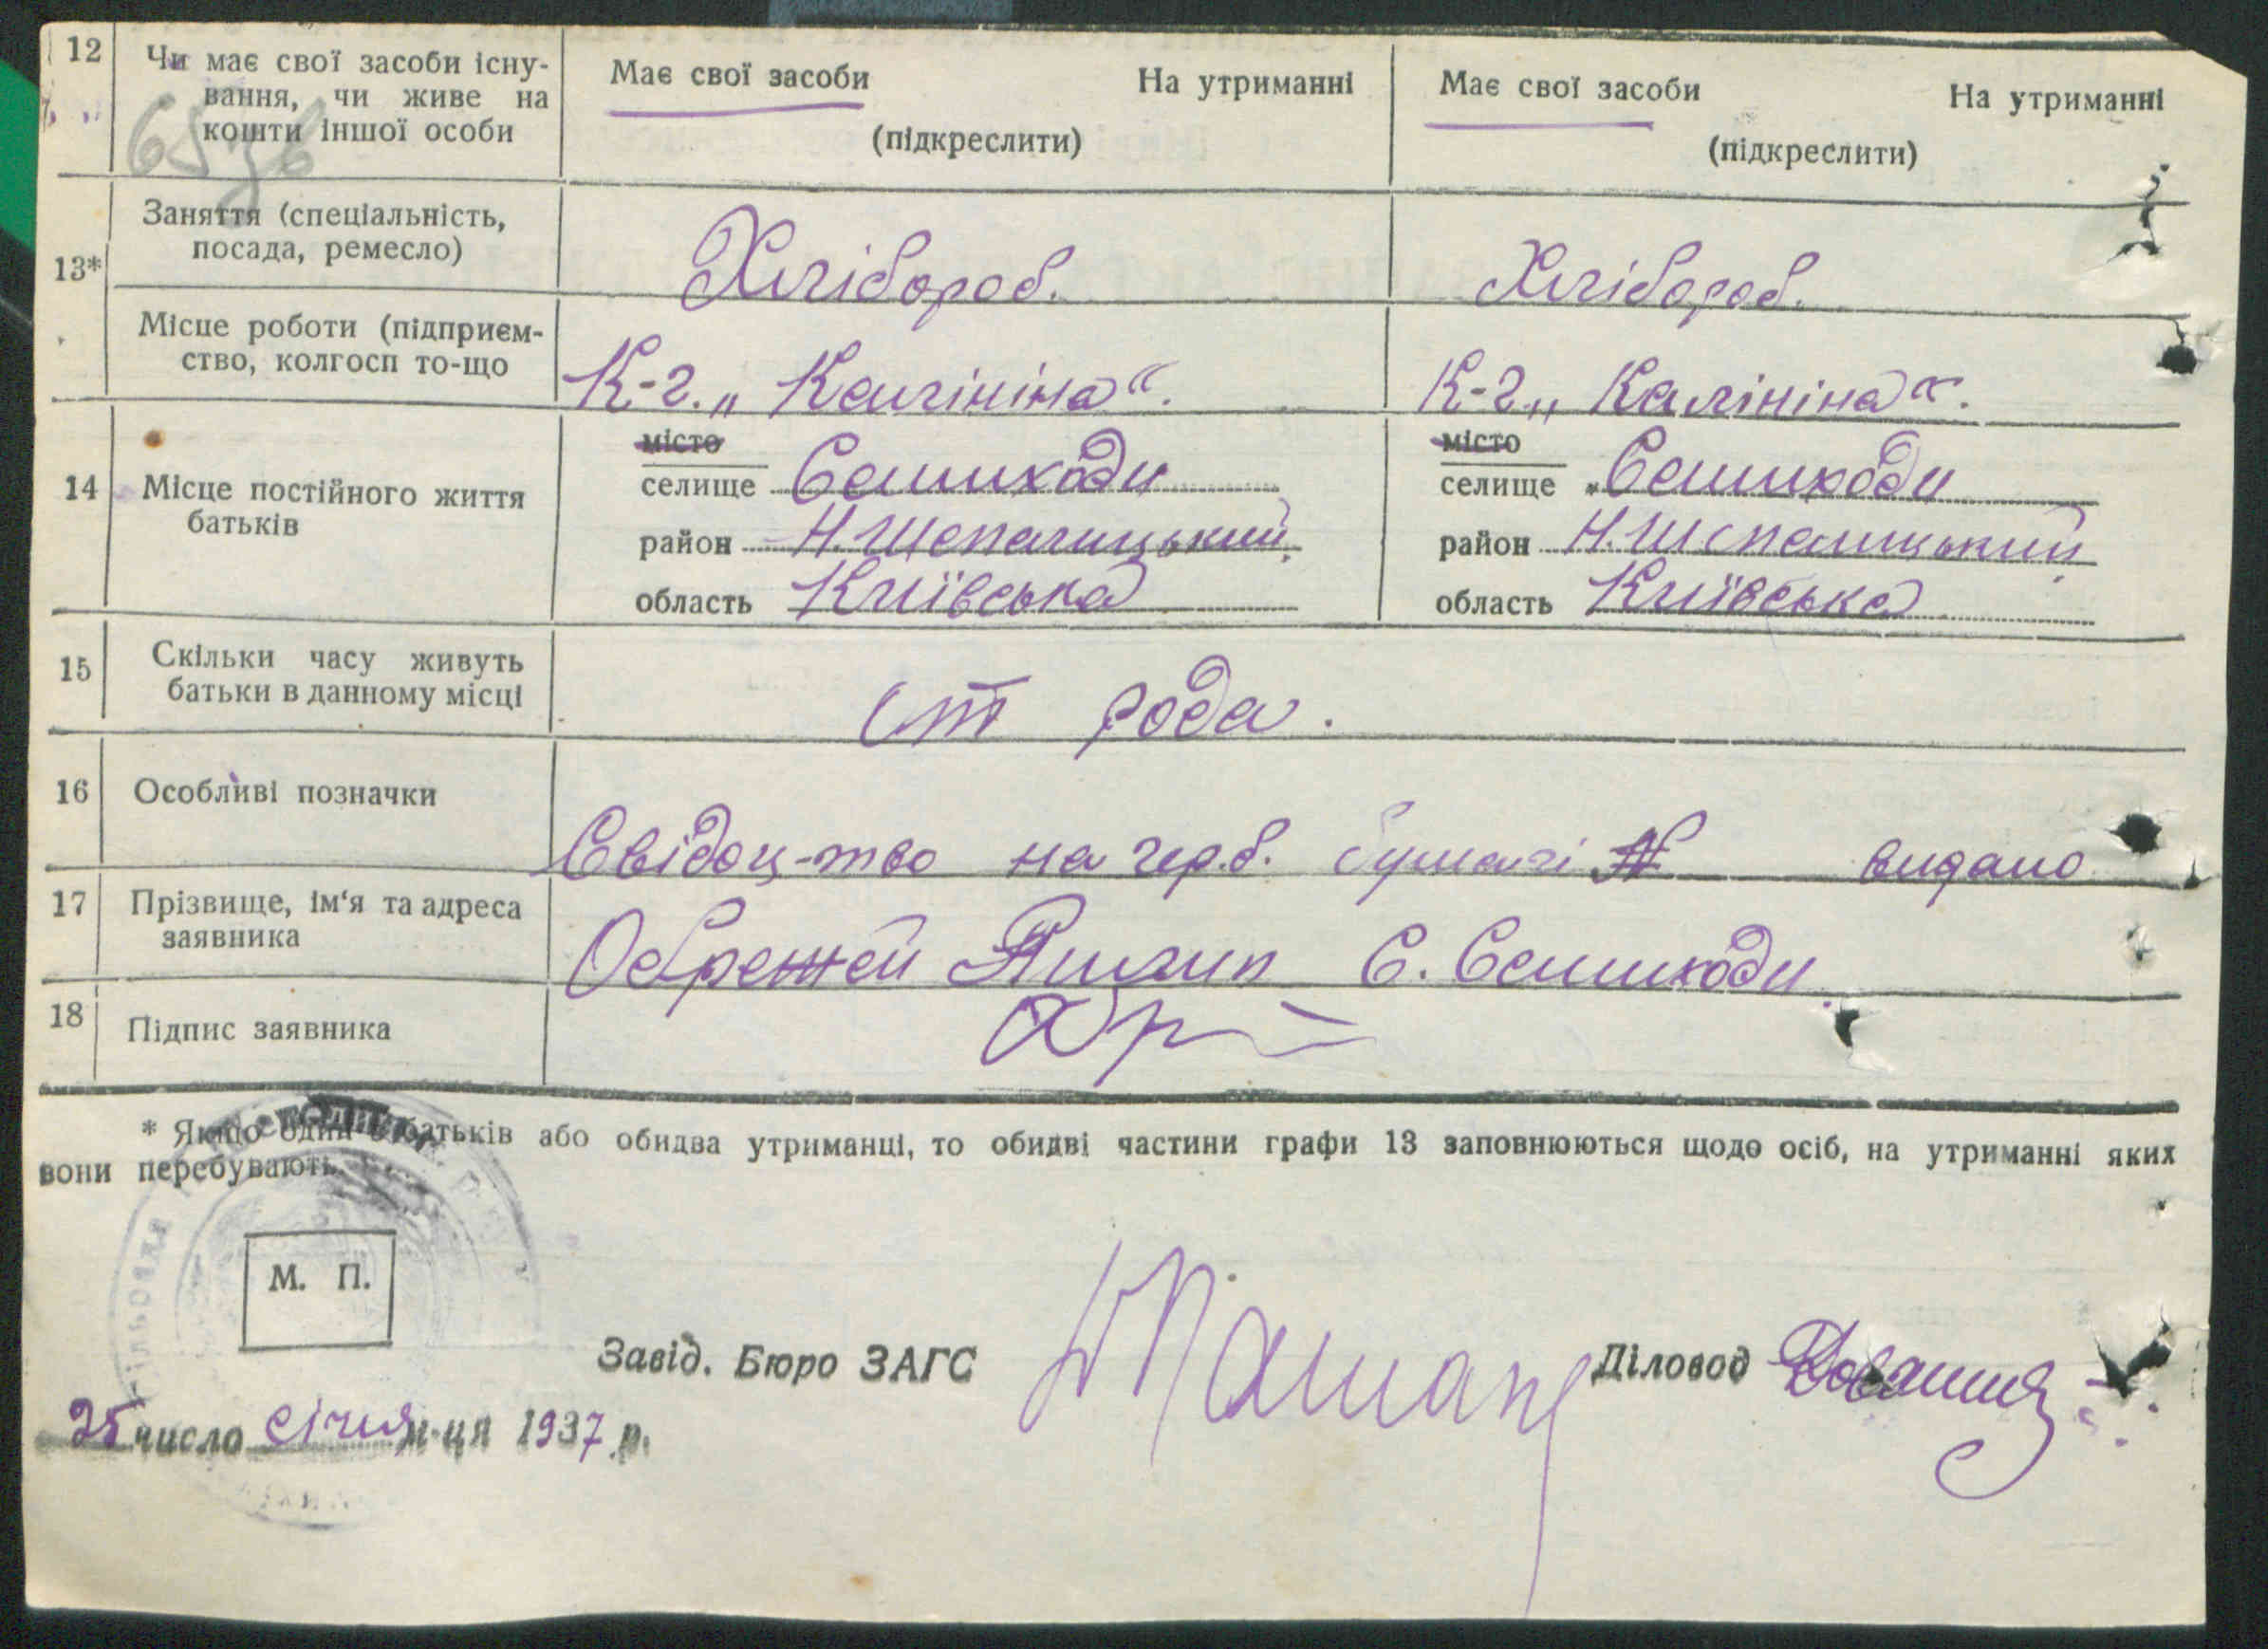 12 Чи має свої засоби існу- Має свої засоби На утриманні Має свої засоби На утриманні
вання, чи живе на
кошти іншої особи (підкреслити) (підкреслити)
Заняття (спеціальність,
посада, ремесло) Хлібороб. Хлібороб.
13*
Місце роботи (підприєм-
ство, колгосп то-що К-г. „Калініна“. К-г „Калініна“.
місто місто
14 Місце постійного життя селище Семиходи селище Семиходи
батьків район Н. Шепелицький район Н. Шепелицький
область Київська область Київська
15 Скільки часу живуть
батьки в данному місці от рода.
16 Особливі позначки
Свідоц-тво на герб. бумагі № видано
17 Прізвище, ім‘я та адреса
заявника Пилип С. Семиходи
18 Підпис заявника
* Якщо один з батьків або обидва утриманці, то обидві частини графи 13 заповнюються щодо осіб, на утриманні яких
вони перебувають.
М. П.
Завід. Бюро ЗАГС Діловод
25 число січня м-ця 1937 р.